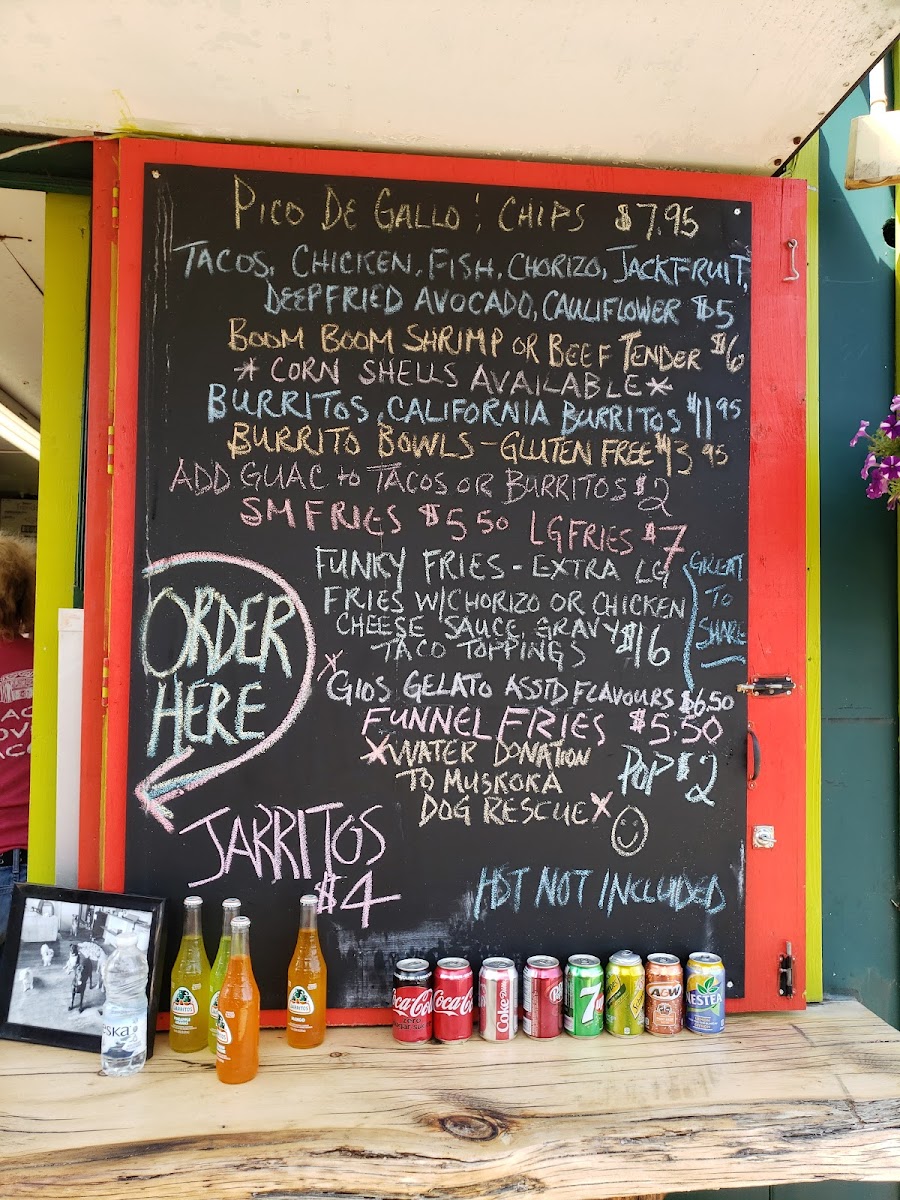 PICO DE GALLO ; CHIPS $7.95
TACOS, CHICKEN, FISH, CHORIZO, JACKFRUIT,
DEEPFRIED AVOCADO, CAULIFLOWER $5
BOOM BOOM SHRIMP OR BEEF TENDER $6
* CORN SHELLS AVAILABLE *
BURRITOS, CALIFORNIA BURRITOS $11 95
BURRITO BOWLS - GLUTEN FREE $13 95
ADD GUAC to TACOS OR BURRITOS $2
SM FRIES $5.50 LG FRIES $7
FUNKY FRIES - EXTRA LG
FRIES W/CHORIZO OR CHICKEN
CHEESE SAUCE, GRAVY $16
TACO TOPPINGS
GREAT
TO
SHARE
ORDER
HERE
GIOS GELATO ASSTD FLAVOURS $6.50
FUNNEL FRIES $5.50
*WATER DONATION
TO MUSKOKA
DOG RESCUE*
POP $2
JARRITOS
$4
HST NOT INCLUDED
ska
JARRITOS
Coca-Cola
Coca-Cola
Coke
Dr Pepper
7
A&W
NESTEA